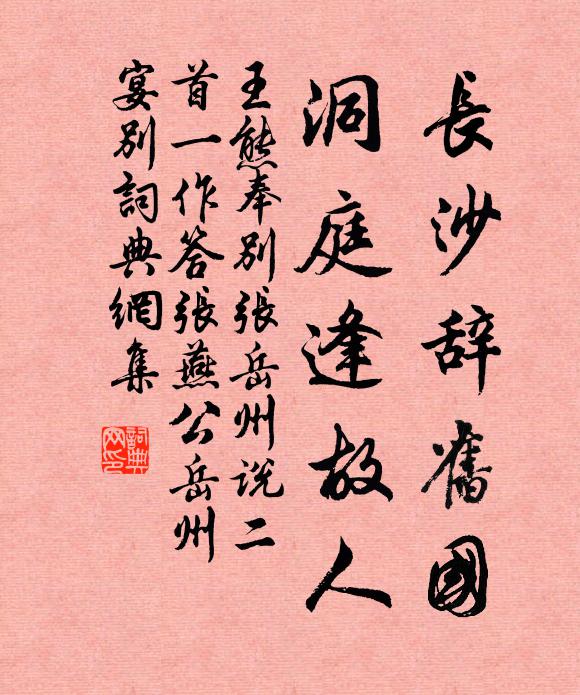 長沙辞舊國
洞庭逢故人
王熊奉別張岳州说二
首一作答張燕公岳州
宴別詞典網集
詞典
网印